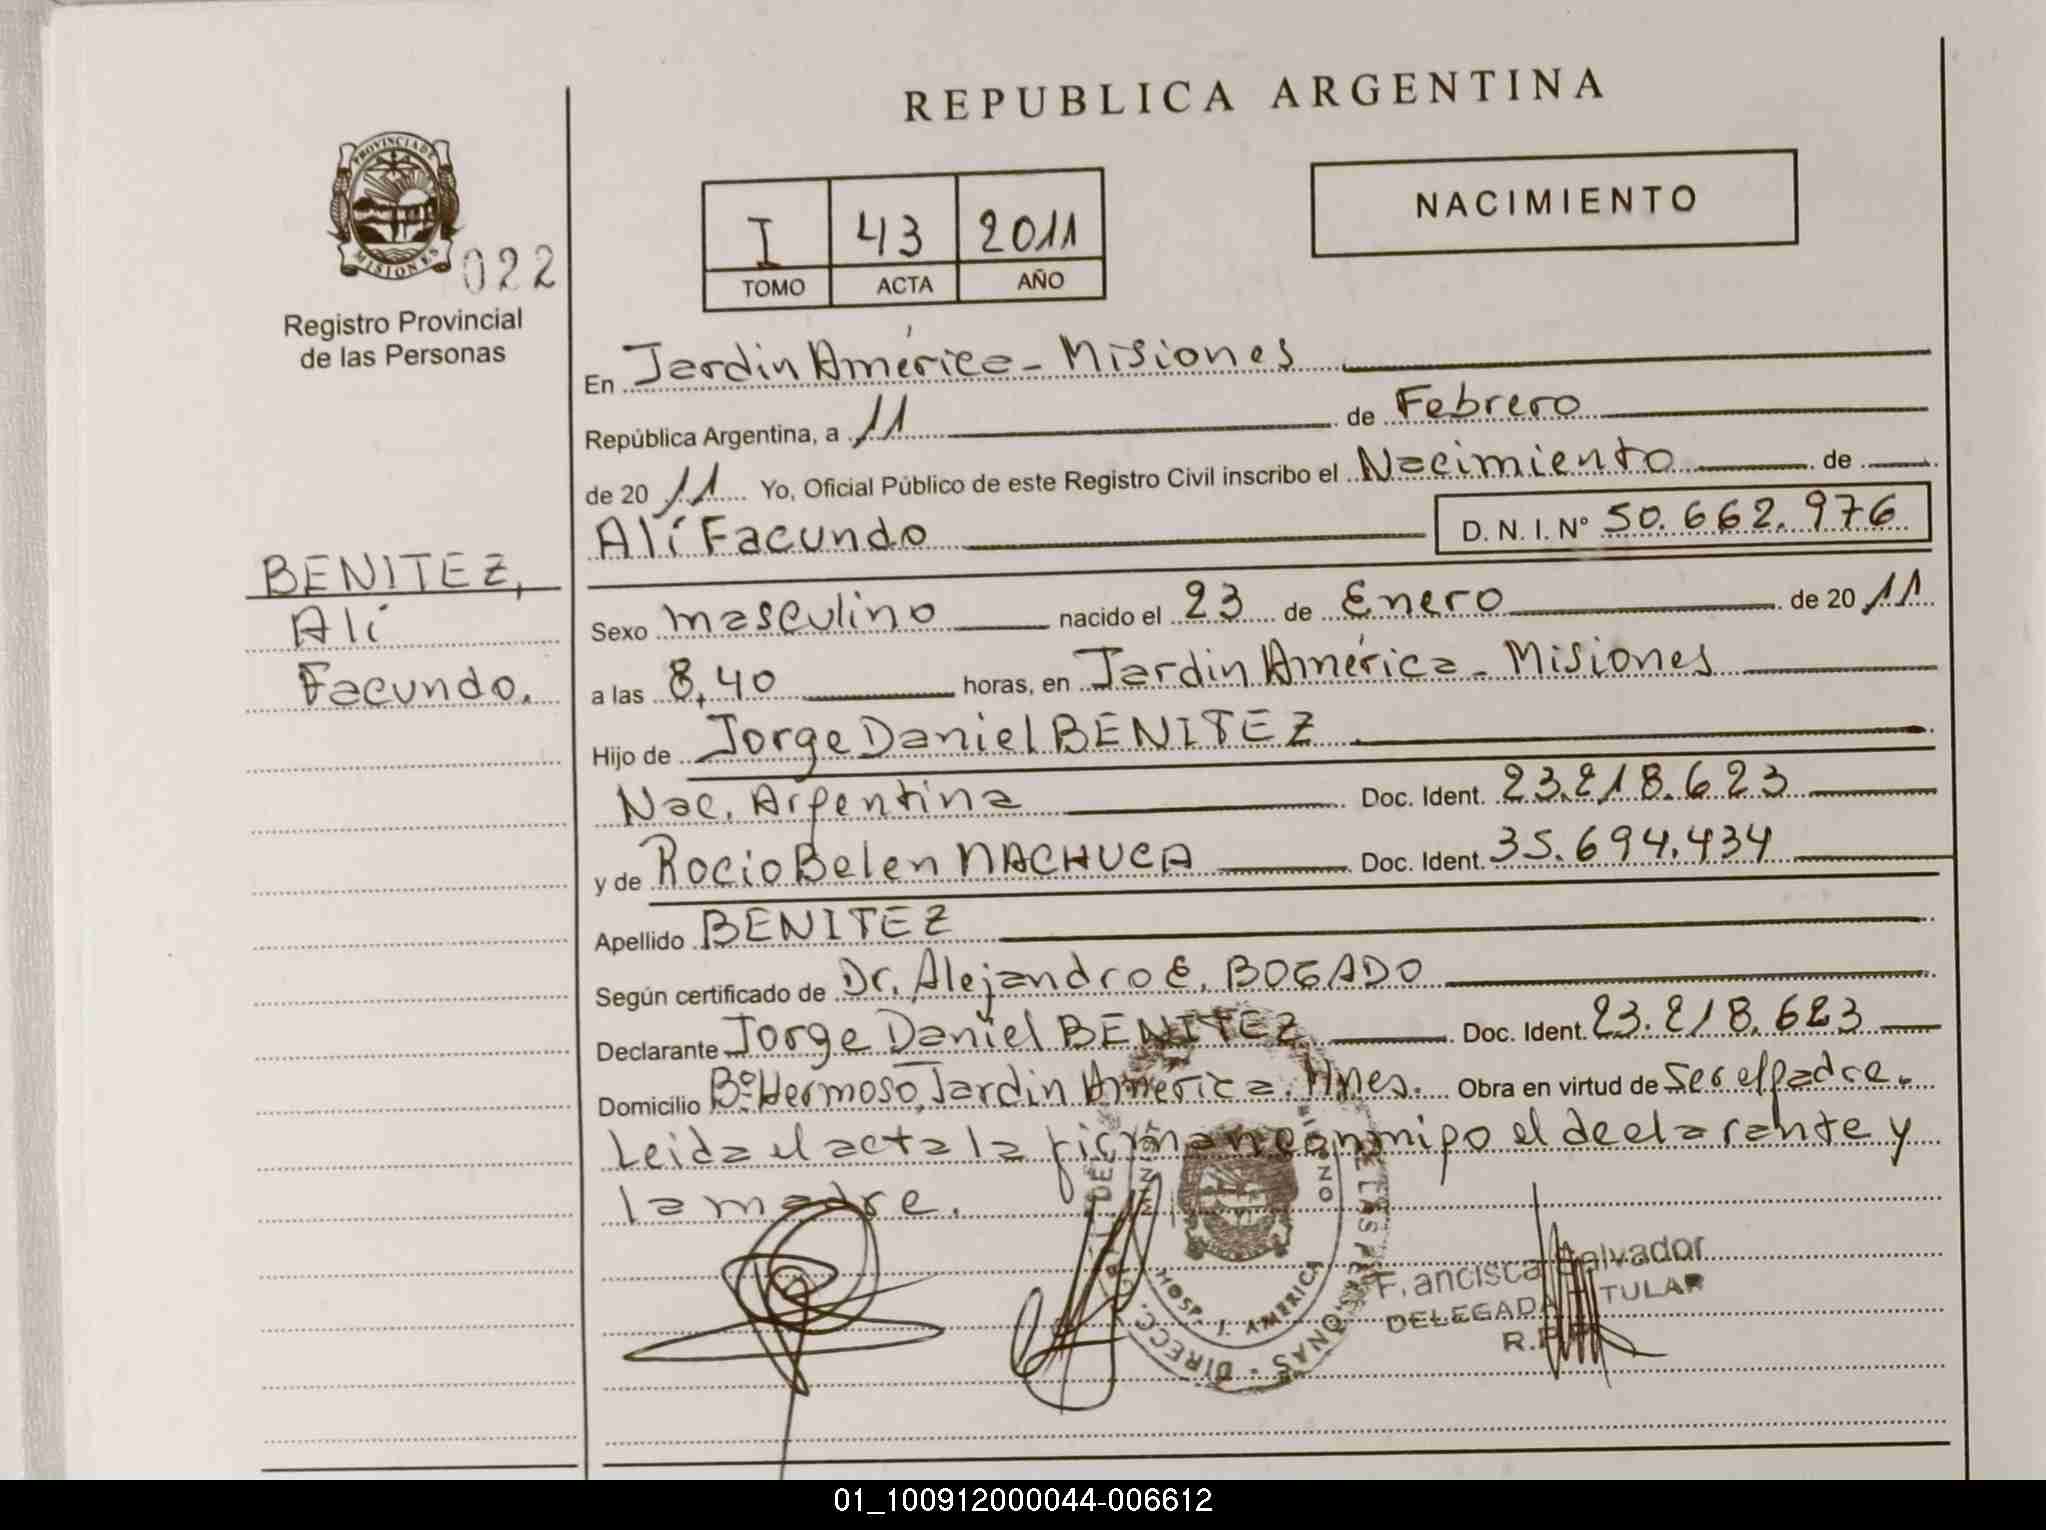 REPUBLICA ARGENTINA
PROVINCIA DE
MISIONES
022
Registro Provincial
de las Personas
I 43 2011
TOMO ACTA AÑO
NACIMIENTO
En Jardin América - Misiones
República Argentina, a 11 de Febrero
de 20 11 Yo, Oficial Público de este Registro Civil inscribo el Nacimiento de
Alí Facundo D. N. I. N° 50.662.976
BENITEZ,
Alí
Facundo.
Sexo masculino nacido el 23 de Enero de 20 11
a las 8,40 horas, en Jardin América - Misiones
Hijo de Jorge Daniel BENITEZ
Nac. Argentina Doc. Ident. 23.218.623
y de Rocio Belen MACHUCA Doc. Ident. 35.694.434
Apellido BENITEZ
Según certificado de Dr. Alejandro E. BOGADO
Declarante Jorge Daniel BENITEZ Doc. Ident. 23.218.623
Domicilio Bº Hermoso, Jardin America. Mnes. Obra en virtud de ser el padre.
Leida el acta la firman conmigo el declarante y
la madre.
HOSP. J. AMERICA
DIRECC.
F.ancisca Salvador
DELEGADA TITULAR
R.P.P.
01_100912000044-006612